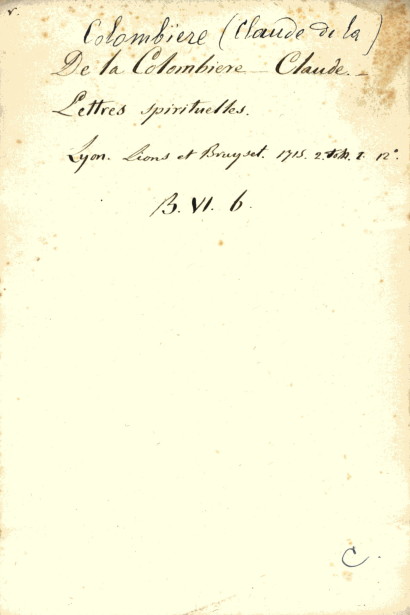 v.
Colombière (Claude de la)
De la Colombiere - Claude. -
Lettres spirituelles.
Lyon. Lions et Bruyset. 1715. 2. tom. 12°.
B. VI. 6.
C.